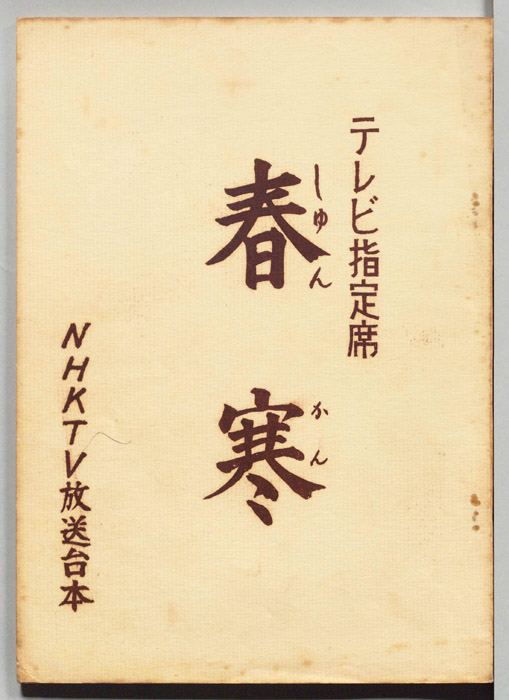 テレビ指定席
春寒
しゅんかん
NHKTV放送台本